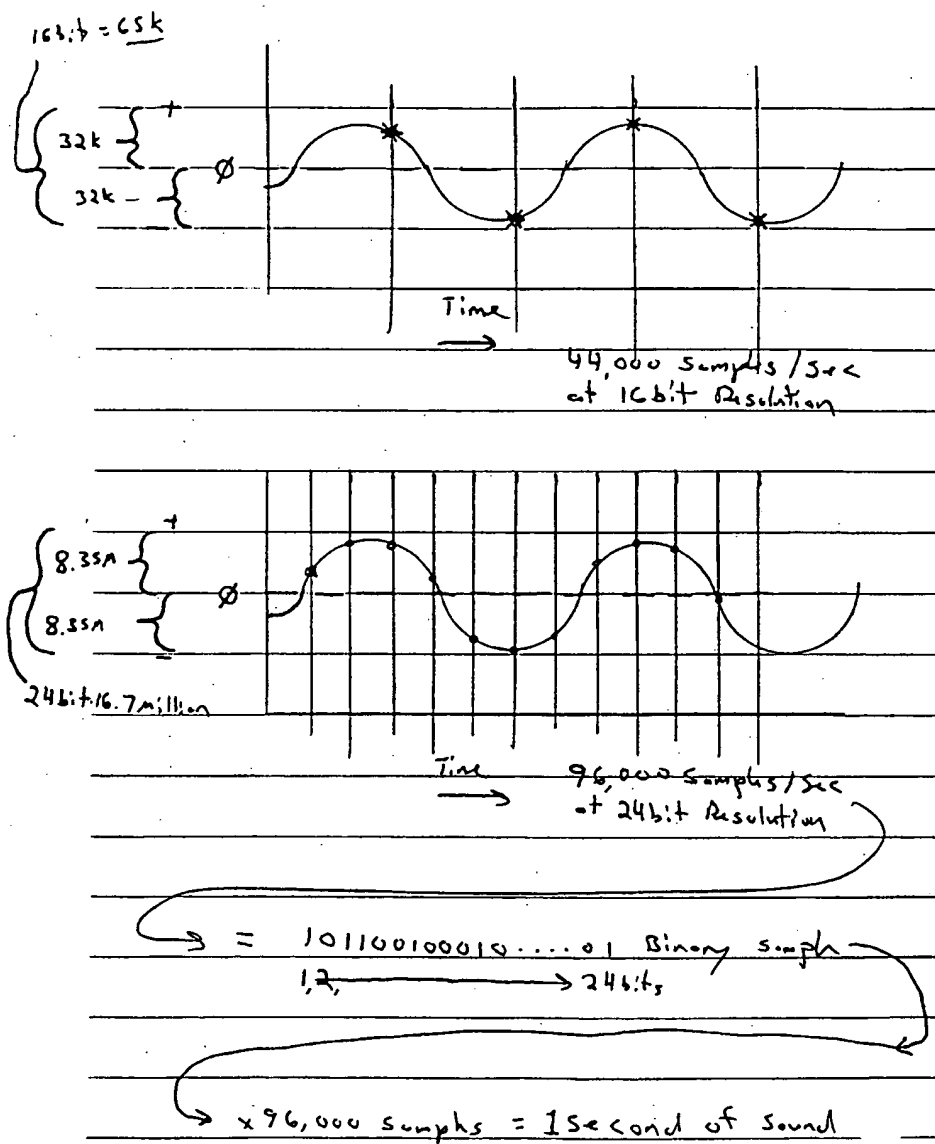 16bit = 65k
+
32k
Ø
32k -
Time
44,000 Samples/Sec
at 16bit Resolution
+
8.35M
Ø
8.35M
-
24bit.16.7 Million
Time
96,000 Samples/Sec
at 24bit Resolution
= 101100100010.....01 Binary Sample
1,2, 24bits
x 96,000 samples = 1 Second of Sound